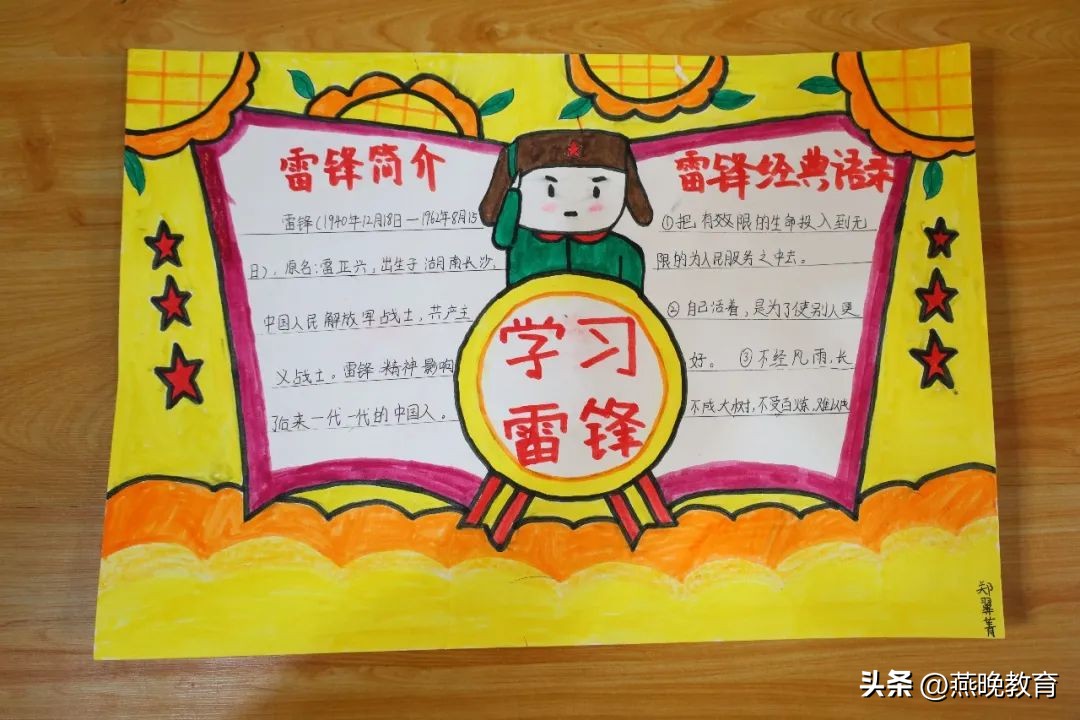 雷锋简介
雷锋(1940年12月18日—1962年8月15
日),原名:雷正兴,出生于湖南长沙,
中国人民解放军战士,共产主
义战士。雷锋精神影响
了后来一代一代的中国人。
学习
雷锋
雷锋经典语录
①把有效限的生命投入到无
限的为人民服务之中去。
②自己活着,是为了使别人更
好。 ③不经风雨,长
不成大树,不受百炼,难以成
郑翼菁
头条 @燕晚教育